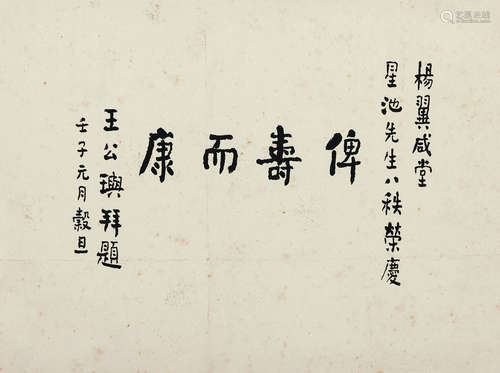 楊翼咸堂
星池先生八秩榮慶
俾壽而康
王公璵拜題
壬子元月穀旦